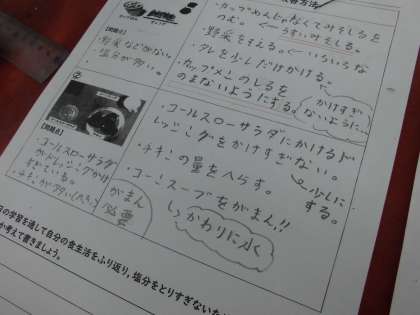 ・カップめんじゃなくてみそしるを
つむ。←うすいみそしる。
・野菜をふえる。←いろいろな
・タレを少しだけかける。
・カップメンのしるを
のまないようにする。
かけすぎ
ないように…
【問題点】
・野菜などがない。
・塩分が多い。
②
・コールスローサラダにかけるド
レッシングをかけすぎない。
少しに
する。
・チキンの量をへらす。
・コーンスープをがまん!!
かわりに水
【問題点】
・コールスローサラダ
がドレッシングかけ
すぎている。
・チキンが多い
がまん
必要
の学習を通して自分の食生活をふり返り、塩分をとりすぎない
か考えて書きましょう。